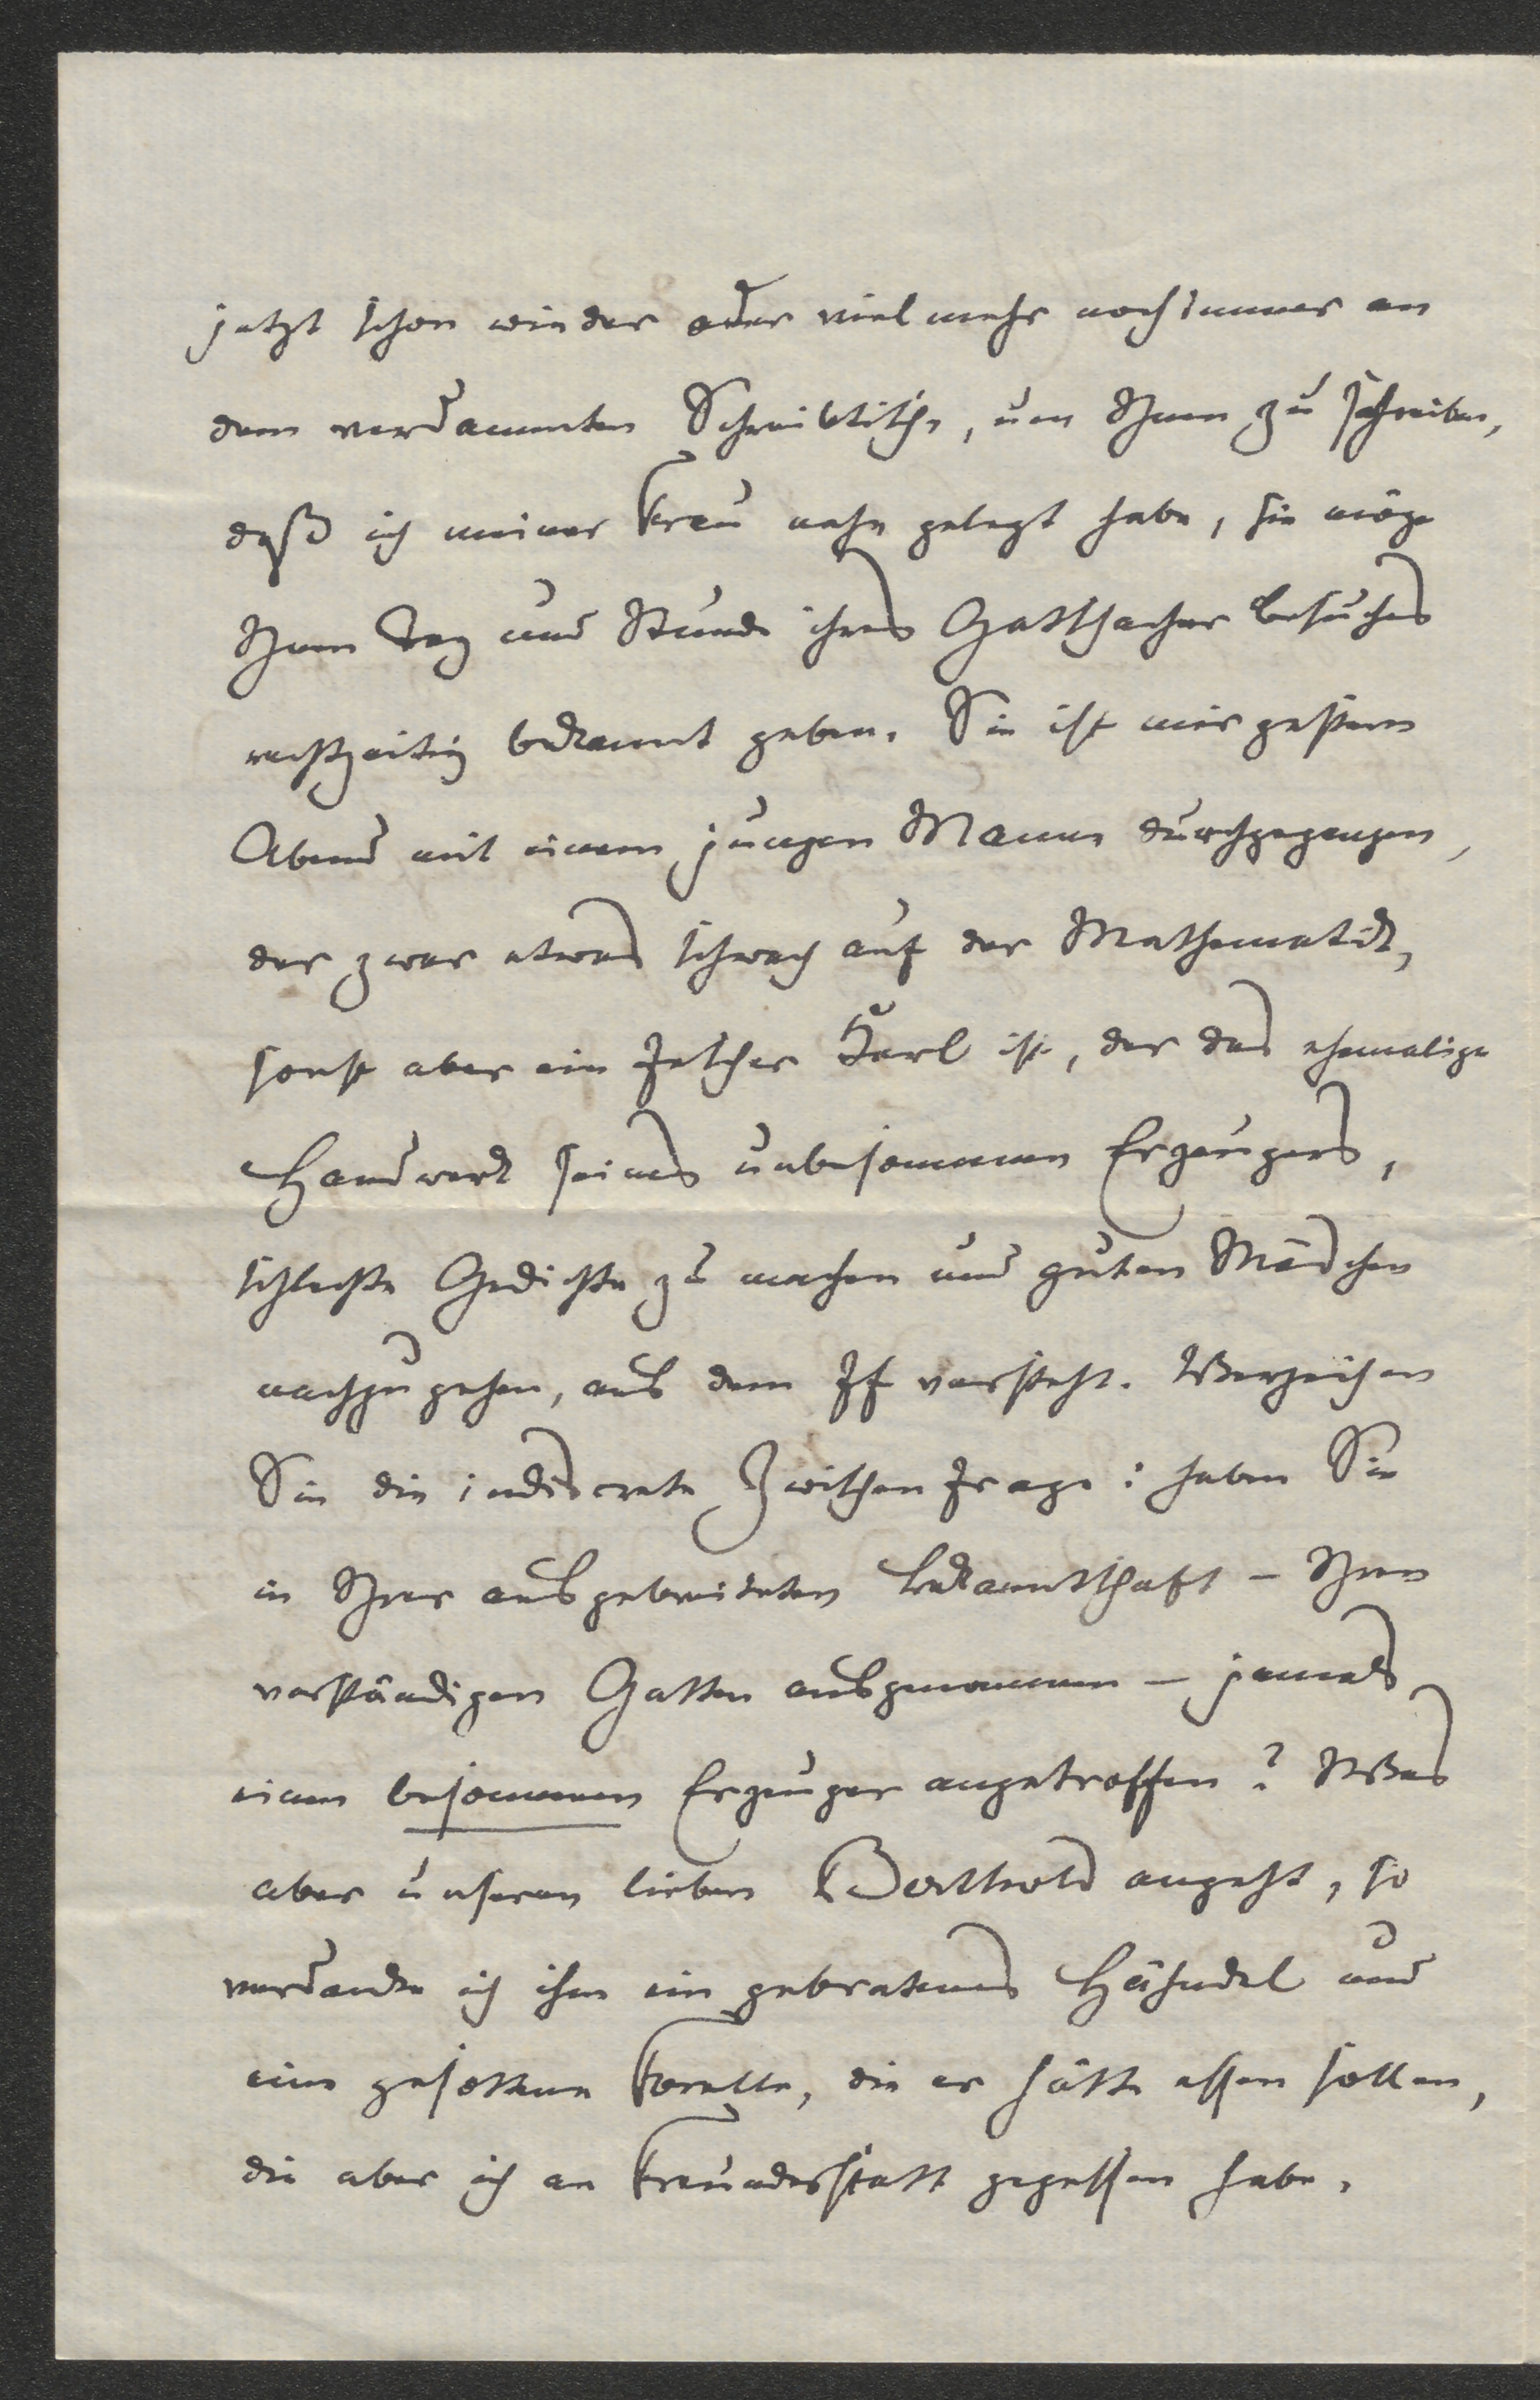 jetzt schon wieder oder vielmehr noch immer an
dem verdammten Schreibtische, um Ihnen zu schreiben,
daß ich meiner Frau nahe gelegt habe, sie möge
Ihnen Tag und Stunde ihres Hatschacher Besuches
rechtzeitig bekannt geben. Sie ist mir gestern
Abend mit einem jungen Manne durchgegangen,
der zwar etwas schwach auf der Mathematik,
sonst aber ein fescher Kerl ist, der das ehemalige
Handwerk seines unbesonnenen Erzeugers,
schlechte Gedichte zu machen und guten Mädchen
nachzugehen, aus dem ff versteht. Verzeihen
Sie die indiscrete Zwischenfrage: haben Sie
in Ihrer ausgebreiteten Bekanntschaft – Ihren
verständigen Gatten ausgenommen – jemals
einen besonnenen Erzeuger angetroffen? Was
aber unseren lieben Berthold angeht, so
verdanke ich ihm ein gebratenes Hähndel und
eine gesottene Forelle, die er hätte essen sollen,
die aber ich an Freundesstatt gegessen habe.